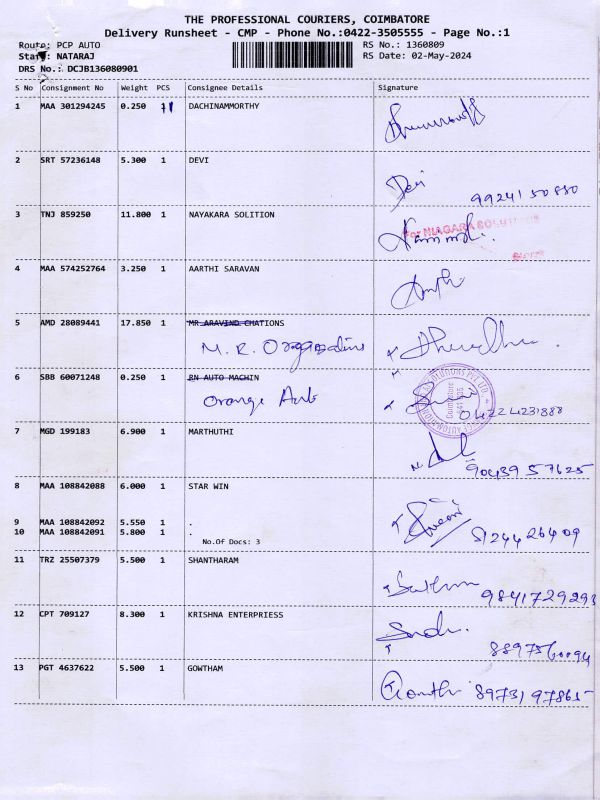 THE PROFESSIONAL COURIERS, COIMBATORE
Delivery Runsheet - CMP - Phone No.:0422-3505555 - Page No.:1
Route: PCP AUTO RS No.: 1360809
Staff: NATARAJ RS Date: 02-May-2024
DRS No.: DCJB136080901
S No Consignment No Weight PCS Consignee Details Signature
1 MAA 301294245 0.250 DACHINAMMORTHY
2 SRT 57236148 5.300 1 DEVI
Devi 9924150850
3 TNJ 859250 11.800 1 NAYAKARA SOLITION
For NIAGARA SOLUTIONS
4 MAA 574252764 3.250 1 AARTHI SARAVAN
5 AMD 28089441 17.850 1 MR.ARAVIND CHATIONS
M. R.
6 SBB 60071248 0.250 1 RN AUTO MACHIN
Orange
04224231888
7 MGD 199183 6.900 1 MARTHUTHI
9043957625
8 MAA 108842088 6.000 1 STAR WIN
9 MAA 108842092 5.550 1 .
10 MAA 108842091 5.800 1 .
No.Of Docs: 3
8124426409
11 TRZ 25507379 5.500 1 SHANTHARAM
9841729293
12 CPT 709127 8.300 1 KRISHNA ENTERPRIESS
8897560094
13 PGT 4637622 5.500 1 GOWTHAM
8973197865